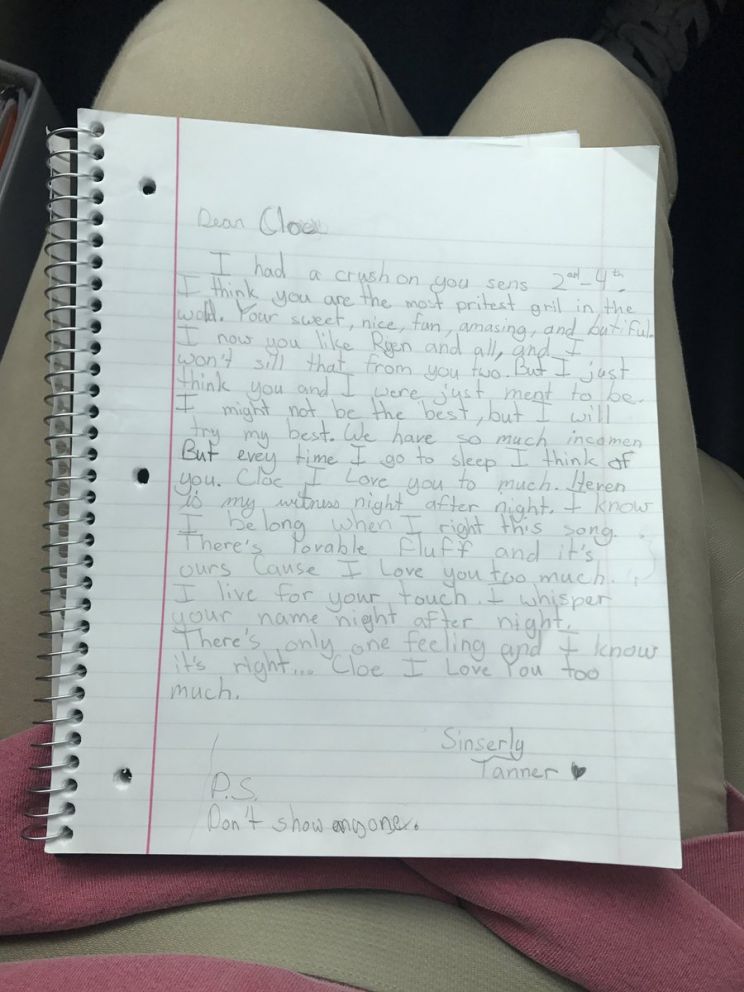 Dear Cloe
I had a crush on you sens 2nd-4th.
I think you are the most pritest gril in the
wold. Your sweet, nice, fun, amasing, and butiful.
I now you like Ryen and all, and I
won't sill that from you two. But I just
think you and I were just ment to be.
I might not be the best, but I will
try my best. We have so much incomen
But evey time I go to sleep I think of
you. Cloe I Love you to much. Heven
is my witness night after night. I know
I belong when I right this song.
There's lovable fluff and it's
ours Cause I Love you too much.
I live for your touch. I whisper
your name night after night.
There's only one feeling and I know
it's right... Cloe I Love You too
much.
Sinserly
Tanner
P.S.
Don't show anyone.